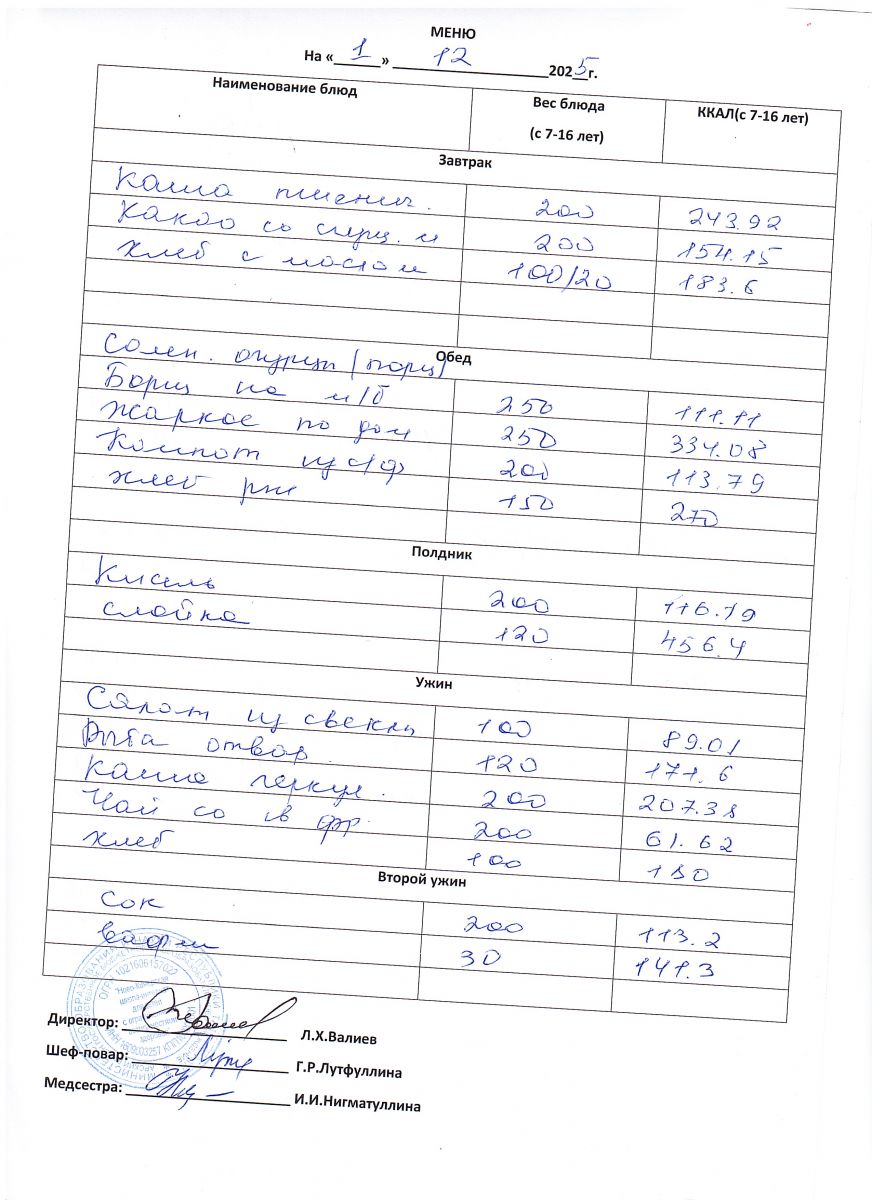 МЕНЮ
На « 1 » 12 2025 г.
Наименование блюд Вес блюда (с 7-16 лет) ККАЛ(с 7-16 лет)
Завтрак
Каша пшенич. 200 243.92
Какао со сгущ. м 200 154.15
Хлеб с маслом 100/20 183.6
Обед
Солен. огурцы (порц)
Борщ на м/б 250 111.11
Жаркое по дом 250 334.08
Компот из с/ф 200 113.79
Хлеб рж 150 270
Полдник
Кисель 200 116.19
слойка 120 456.4
Ужин
Салат из свеклы 100 89.01
Рыба отвар. 120 171.6
Каша геркул. 200 207.38
Чай со св фр. 200 61.62
Хлеб 100 180
Второй ужин
Сок 200 113.2
вафли 30 141.3
Директор: Л.Х.Валиев
Шеф-повар: Г.Р.Лутфуллина
Медсестра: И.И.Нигматуллина